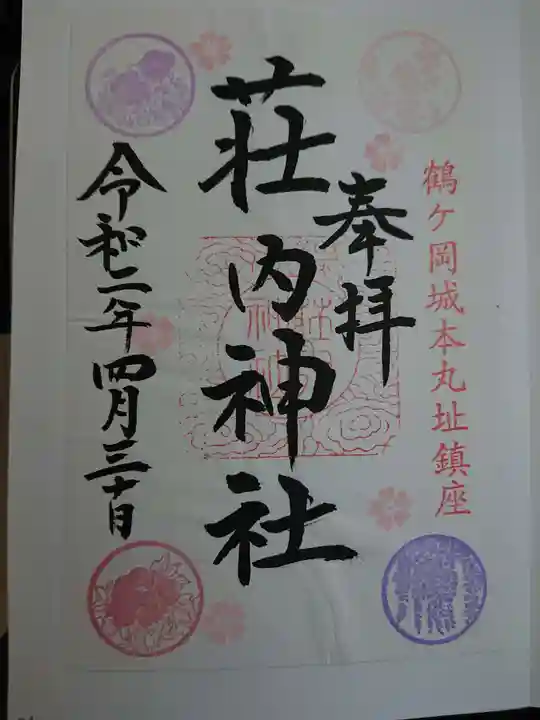 鶴ケ岡城本丸址鎮座
奉拝
荘内神社
令和二年四月三十日